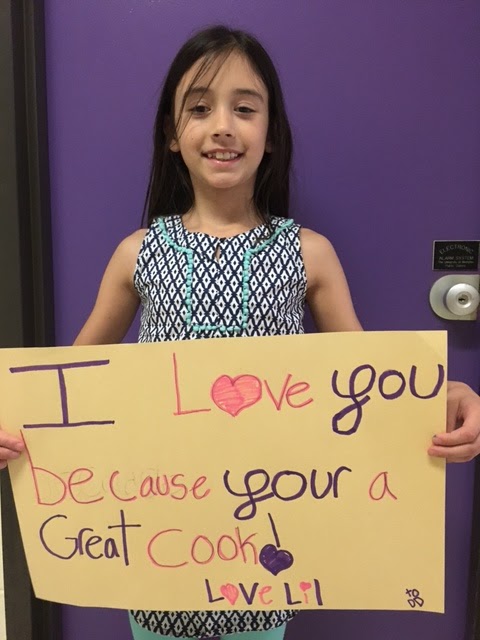 I Love you
because your a
Great cook!
Love Lil
ELECTRONIC
ALARM SYSTEM